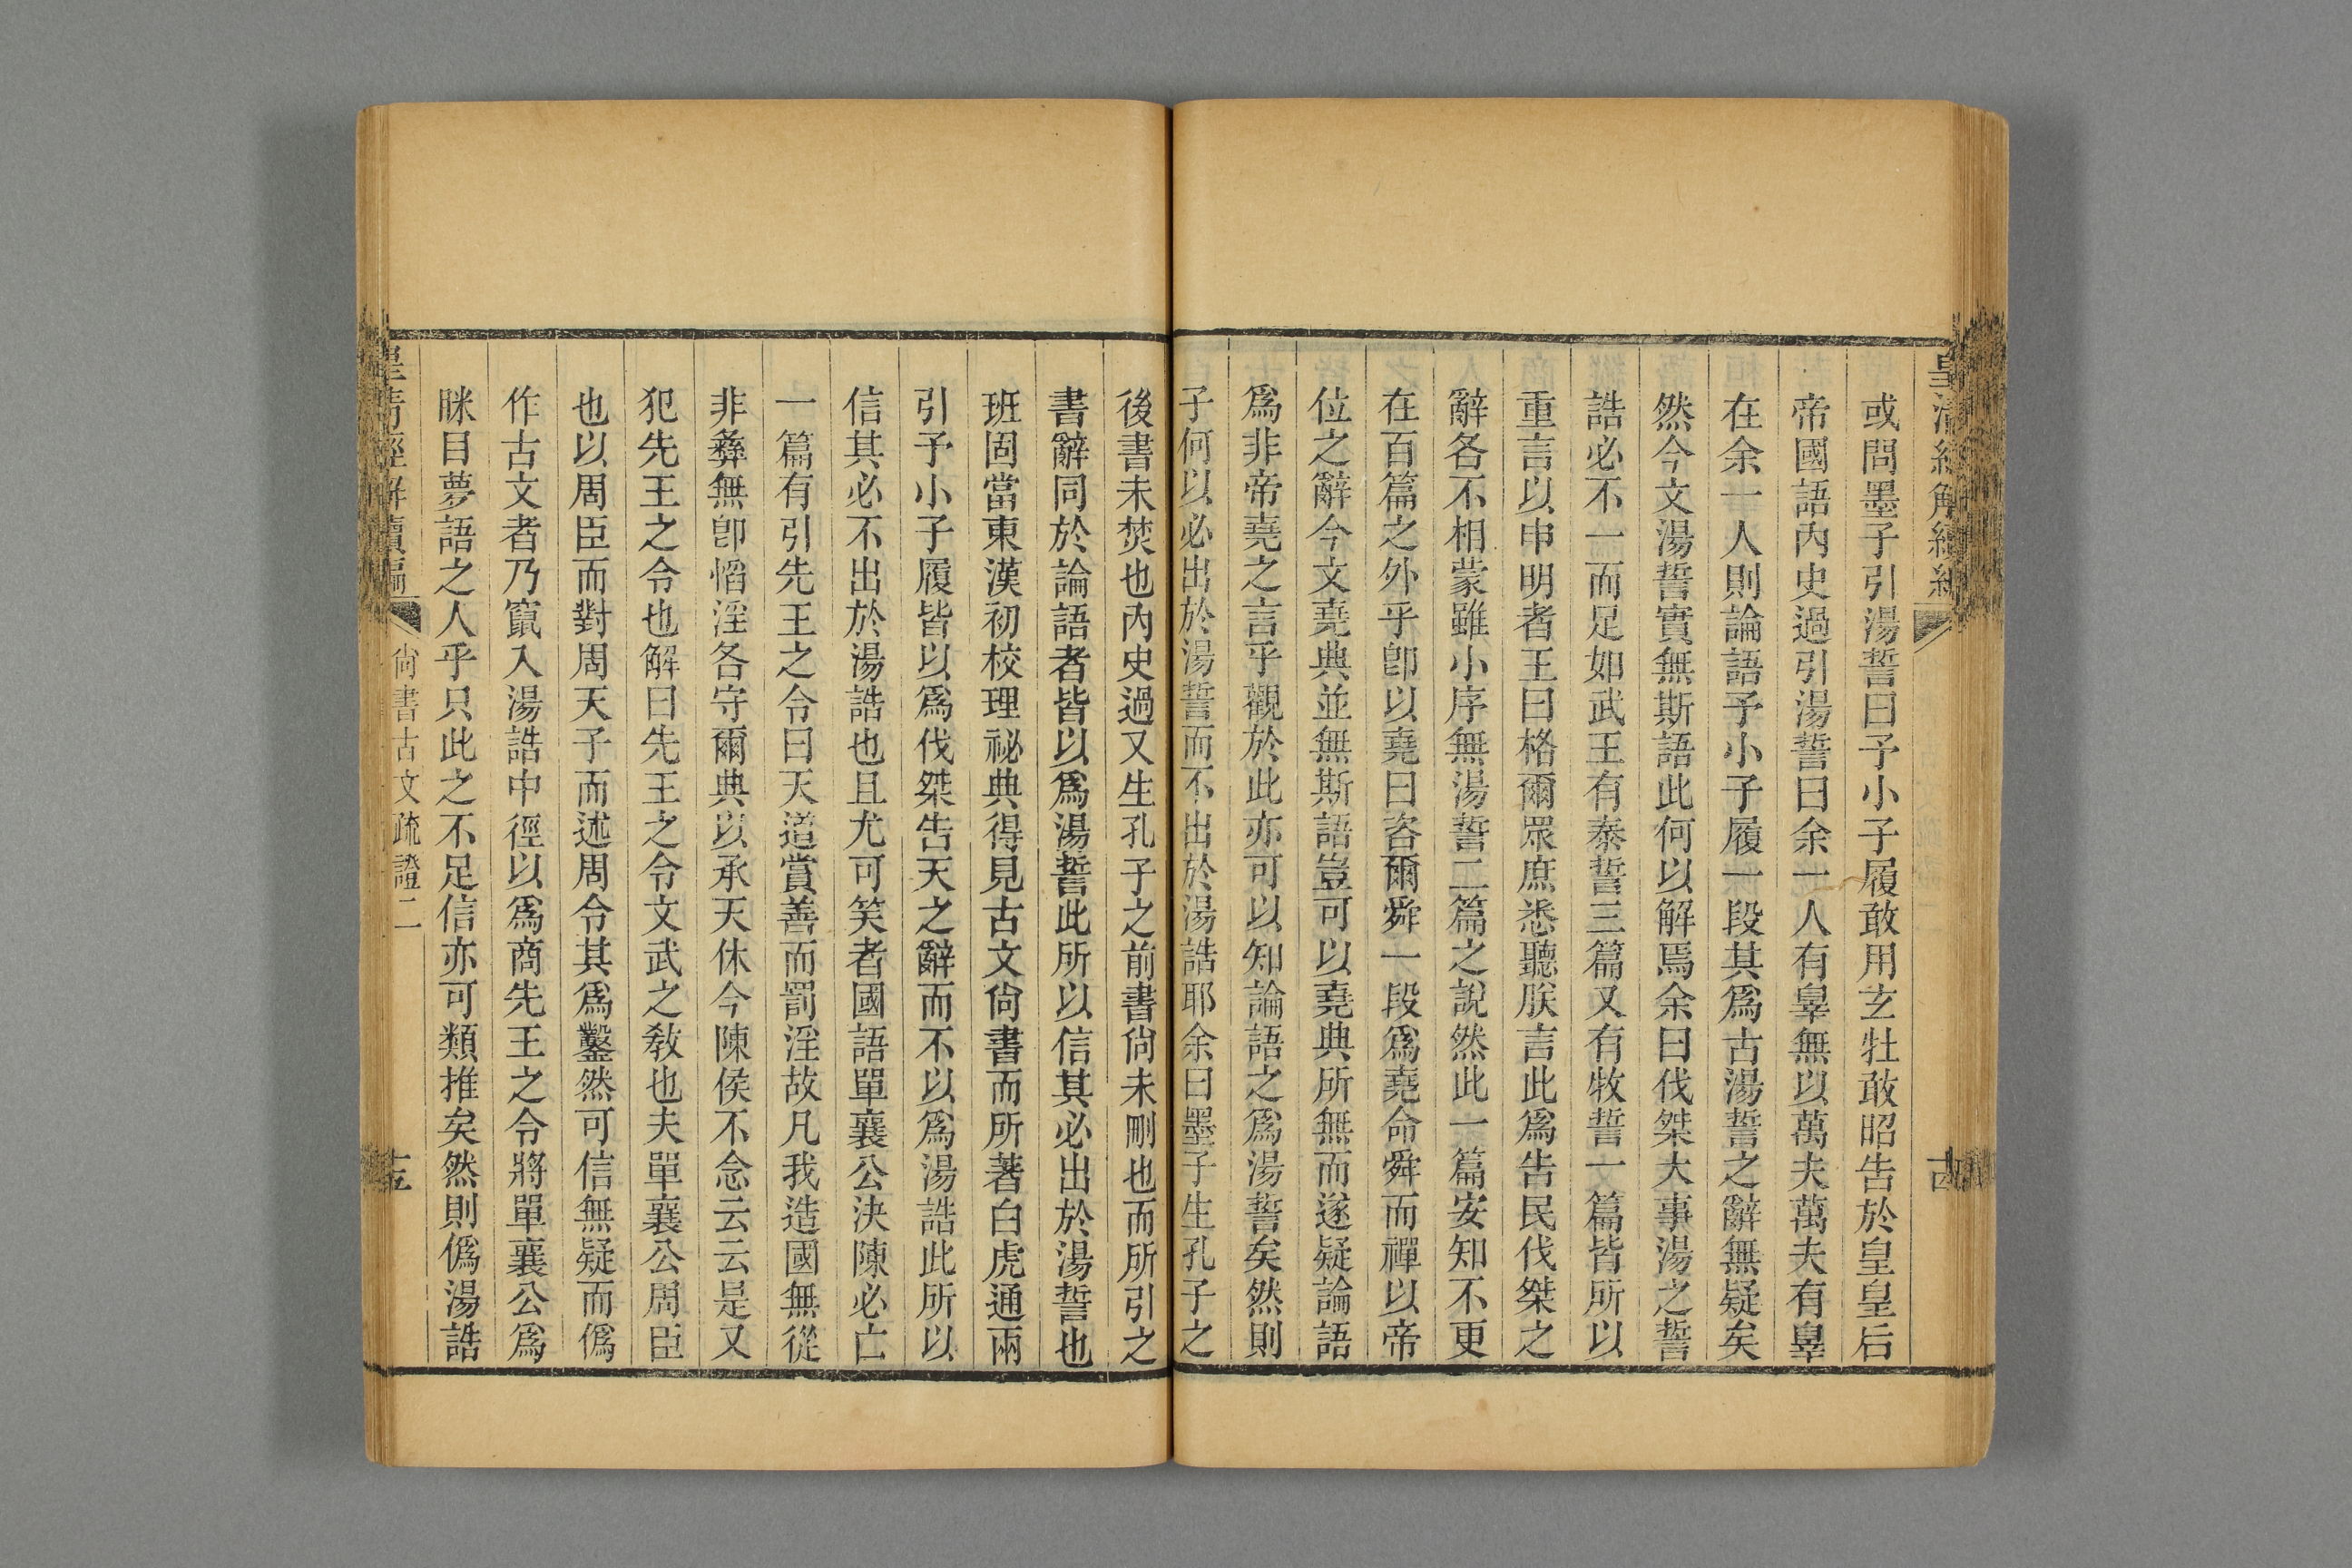 皇清經解續編
或問墨子引湯誓曰予小子履敢用玄牡敢昭告於皇皇后
帝國語內史過引湯誓曰余一人有辠無以萬夫萬夫有辠
在余一人則論語予小子履一段其爲古湯誓之辭無疑矣
然今文湯誓實無斯語此何以解焉余曰伐桀大事湯之誓
誥必不一而足如武王有泰誓三篇又有牧誓一篇皆所以
重言以申明者王曰格爾眾庶悉聽朕言此爲告民伐桀之
辭各不相蒙雖小序無湯誓二篇之說然此一篇安知不更
在百篇之外乎卽以堯曰咨爾舜一段爲堯命舜而禪以帝
位之辭今文堯典並無斯語豈可以堯典所無而遂疑論語
爲非帝堯之言乎觀於此亦可以知論語之爲湯誓矣然則
子何以必出於湯誓而不出於湯誥耶余曰墨子生孔子之
後書未焚也內史過又生孔子之前書尙未刪也而所引之
書辭同於論語者皆以爲湯誓此所以信其必出於湯誓也
班固當東漢初校理祕典得見古文尙書而所著白虎通兩
引予小子履皆以爲伐桀告天之辭而不以爲湯誥此所以
信其必不出於湯誥也且尤可笑者國語單襄公決陳必亡
一篇有引先王之令曰天道賞善而罰淫故凡我造國無從
非彝無卽慆淫各守爾典以承天休今陳侯不念云云是又
犯先王之令也解曰先王之令文武之敎也夫單襄公周臣
也以周臣而對周天子而述周令其爲鑿然可信無疑而僞
作古文者乃竄入湯誥中徑以爲商先王之令將單襄公爲
眯目夢語之人乎只此之不足信亦可類推矣然則僞湯誥
皇清經解續編
尙書古文疏證二
十五